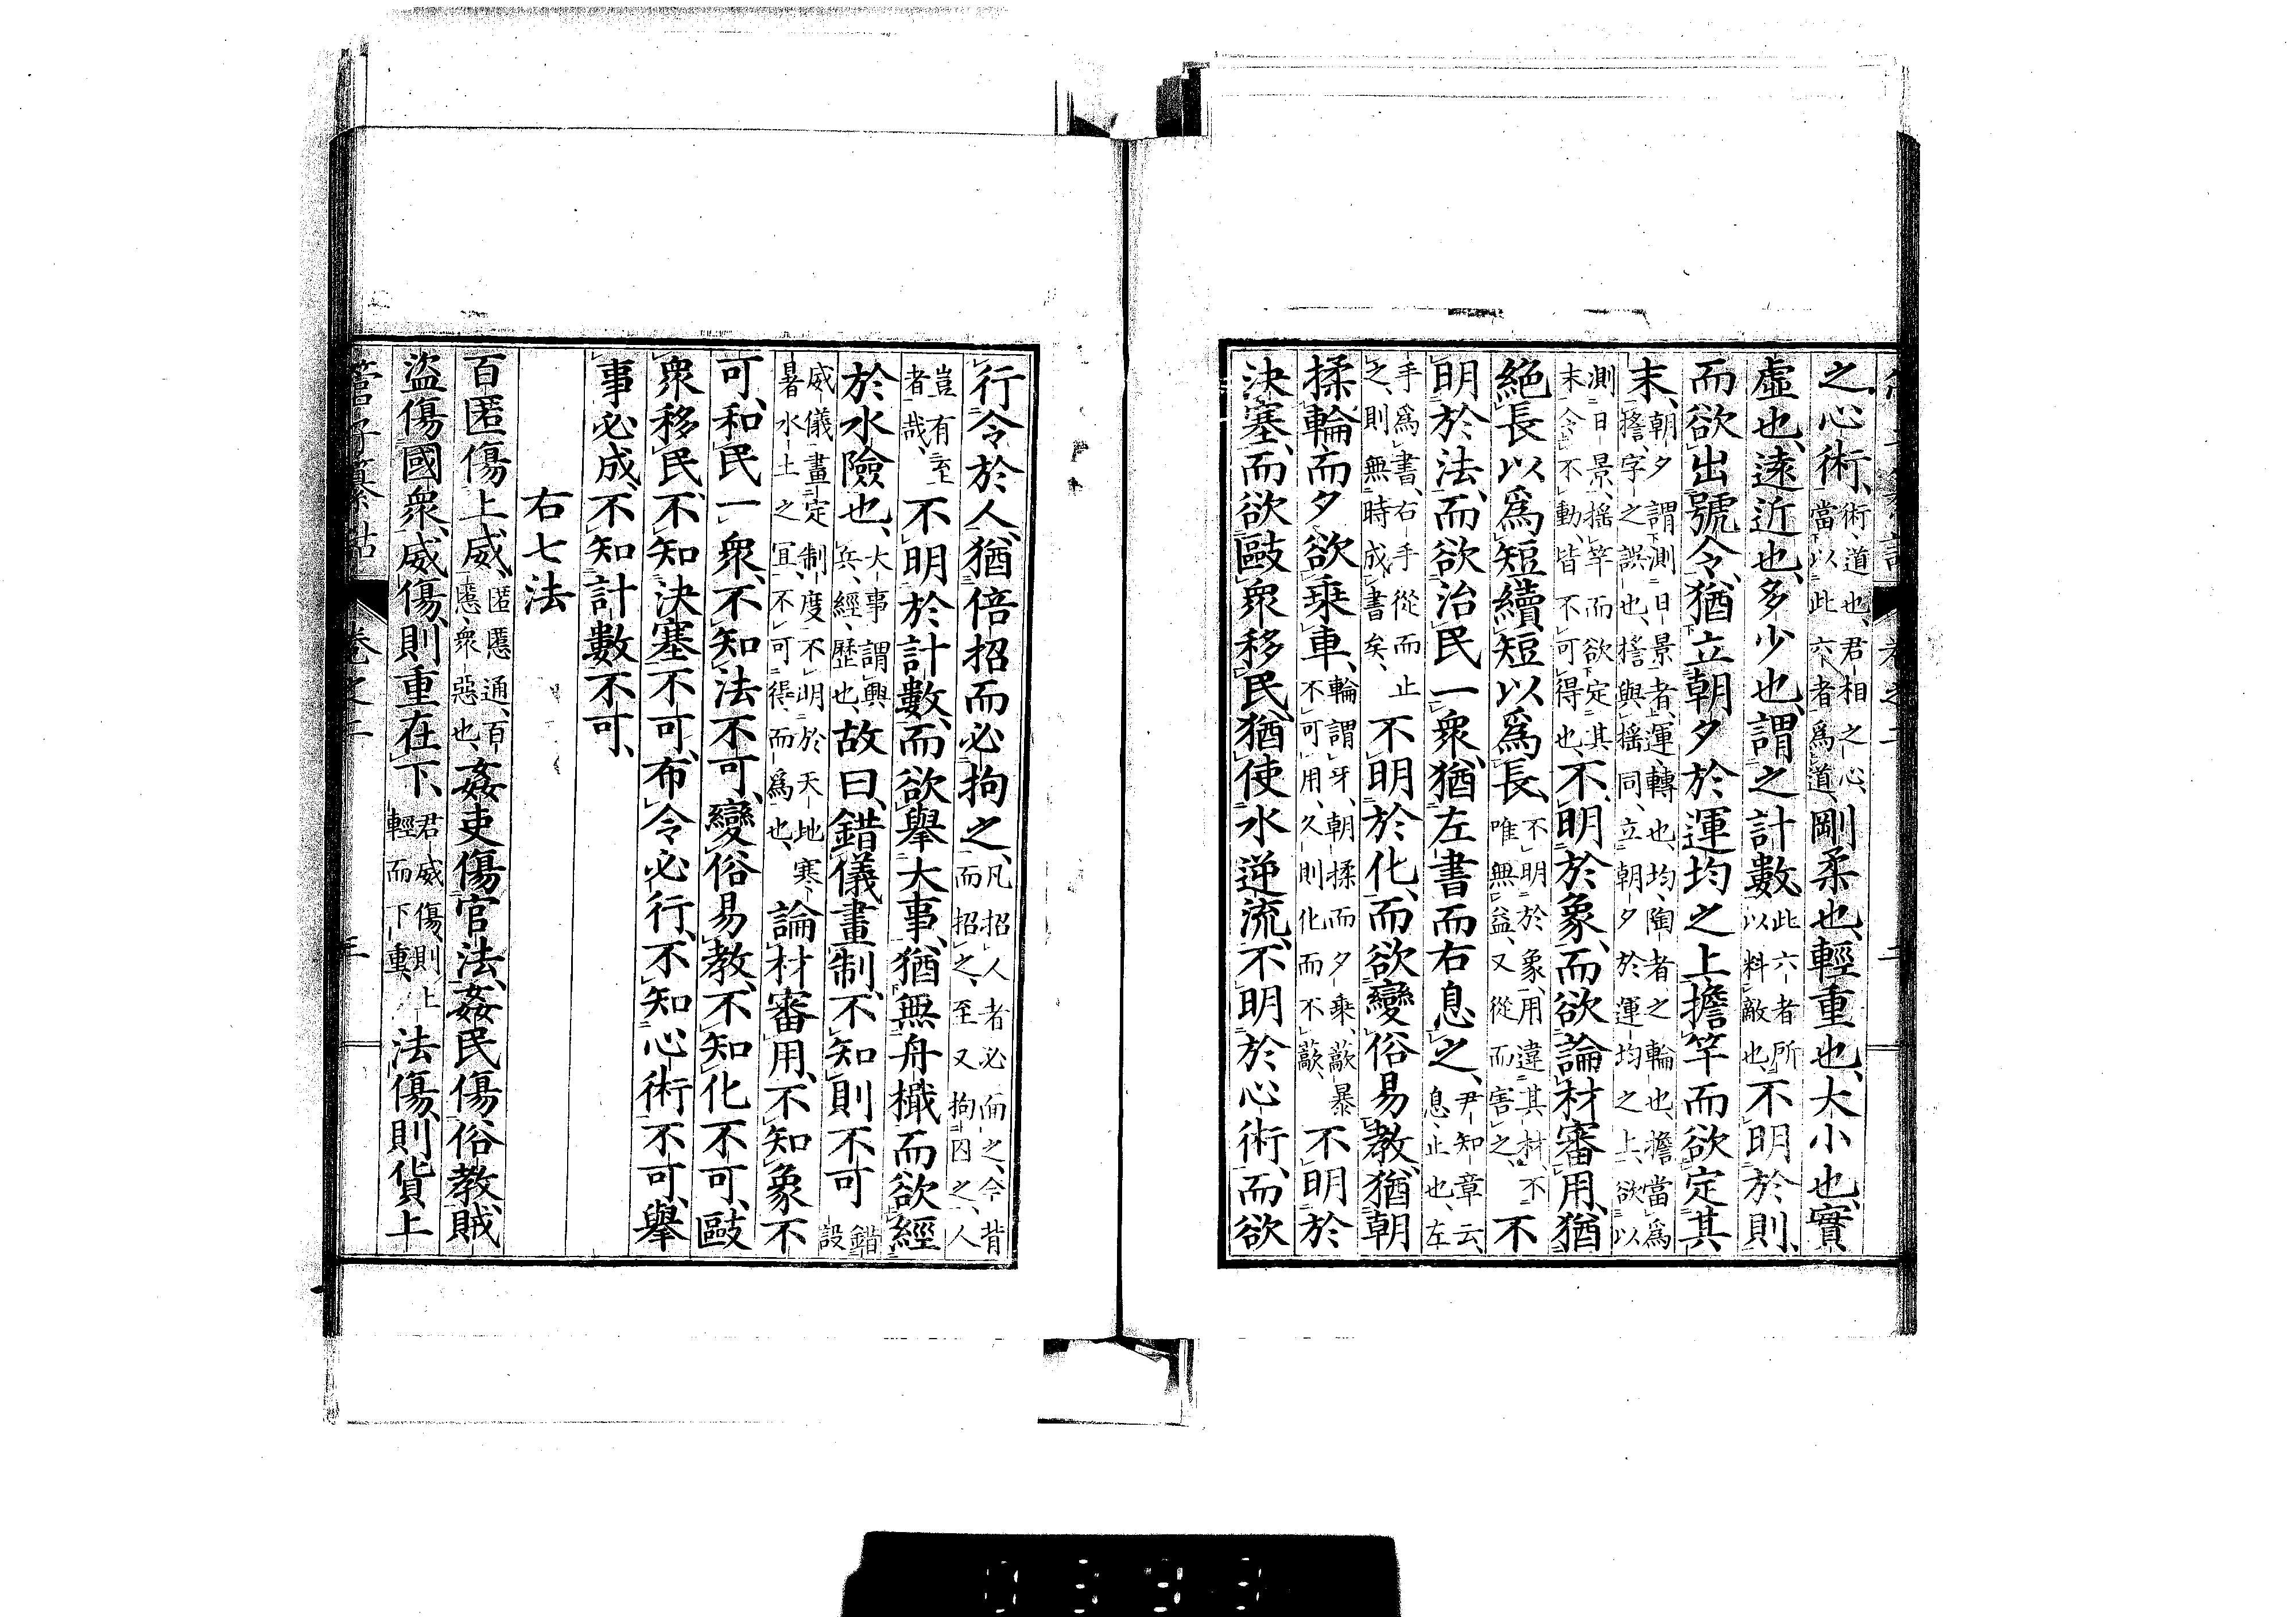 之心術、術、道也、君相之心、當以此六者爲道、剛柔也、輕重也、大小也、實
虛也、遠近也、多少也、謂之計數、此六者所以料敵也、不明於則、
而欲出號令、猶立朝夕於運均之上、擔竿而欲定其
末、朝夕謂測日景者、運、轉也、均、陶者之輪也、擔當爲擔、字之誤也、擔與搖同、立朝夕於運均之上、欲以
測日景、搖竿而欲定其末、令不動、皆不可得也、不明於象、而欲論材審用、猶
絕長以爲短、續短以爲長、不明於象、用違其材、不唯無益、又從而害之、不
明於法、而欲治民一衆、猶左書而右息之、尹知章云、息、止也、左
手爲書、右手從而止之、則無時成書矣、不明於化、而欲變俗易教、猶朝
揉輪而夕欲乘車、輪謂牙、朝揉而夕乘、歊暴不可用、久則化而不歊、不明於
決塞、而欲敺衆移民、猶使水逆流、不明於心術、而欲
行令於人、猶倍招而必拘之、凡招人者必面之、今背而招之、至又拘囚之、人
豈有至者哉、不明於計數、而欲擧大事、猶無舟檝而欲經
於水險也、大事謂興兵、經、歷也、故曰、錯儀畫制、不知則不可、錯設
威儀、畫定制度、不明於天地寒暑水土之宜、不可得而爲也、論材審用、不知象不
可、和民一衆、不知法不可、變俗易教、不知化不可、敺
衆移民、不知決塞不可、布令必行、不知心術不可、擧
事必成、不知計數不可、
右七法
百匿傷上威、匿慝通、百慝、衆惡也、姦吏傷官法、姦民傷俗教、賊
盜傷國衆、威傷、則重在下、君威傷、則上輕而下重、法傷、則貨上
管子纂詁 卷之二